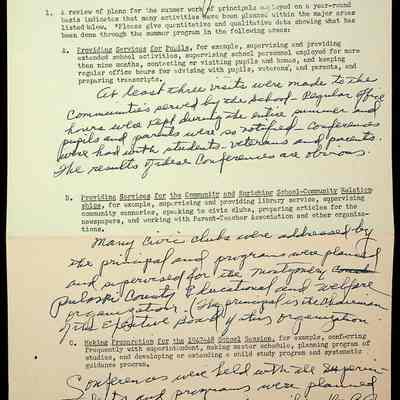 1. A review of plans for the summer work of principals employed on a year-round
basis indicates that many activities have been planned within the major areas
listed below. Please give quantitative and qualitative data showing what has
been done through the summer program in the following areas:
A. Providing Services for Pupils, for example, supervising and providing
extended school activities, supervising school personnel employed for more
than nine months, contacting or visiting pupils and homes, and keeping
regular office hours for advising with pupils, veterans, and parents, and
preparing transcripts.
At least three visits were made to the
Communities served by the school - Regular office
hours were kept during the entire summer and
pupils and parents were so notified - Conferences
were had with students - veterans and parents.
The results of these Conferences are obvious.
B. Providing Services for the Community and Enriching School-Community Relation
ships, for example, supervising and providing library service, supervising
community canneries, speaking to civic clubs, preparing articles for the
newspapers, and working with Parent-Teacher Association and other organiza-
tions.
Many Civic clubs were addressed by
the principal and programs were planned
and supervised for the Montgomery
Pulaski County Educational and Welfare
organization. (The principal is the Chairman
of the Executive Board of this organization
C. Making Preparation for the 1947-48 School Session, for example, conferring
frequently with superintendent, making master schedule, planning program of
studies, and developing or extending a child study program and systematic
guidance program.
Conferences were held with the Superin-
and programs were planned